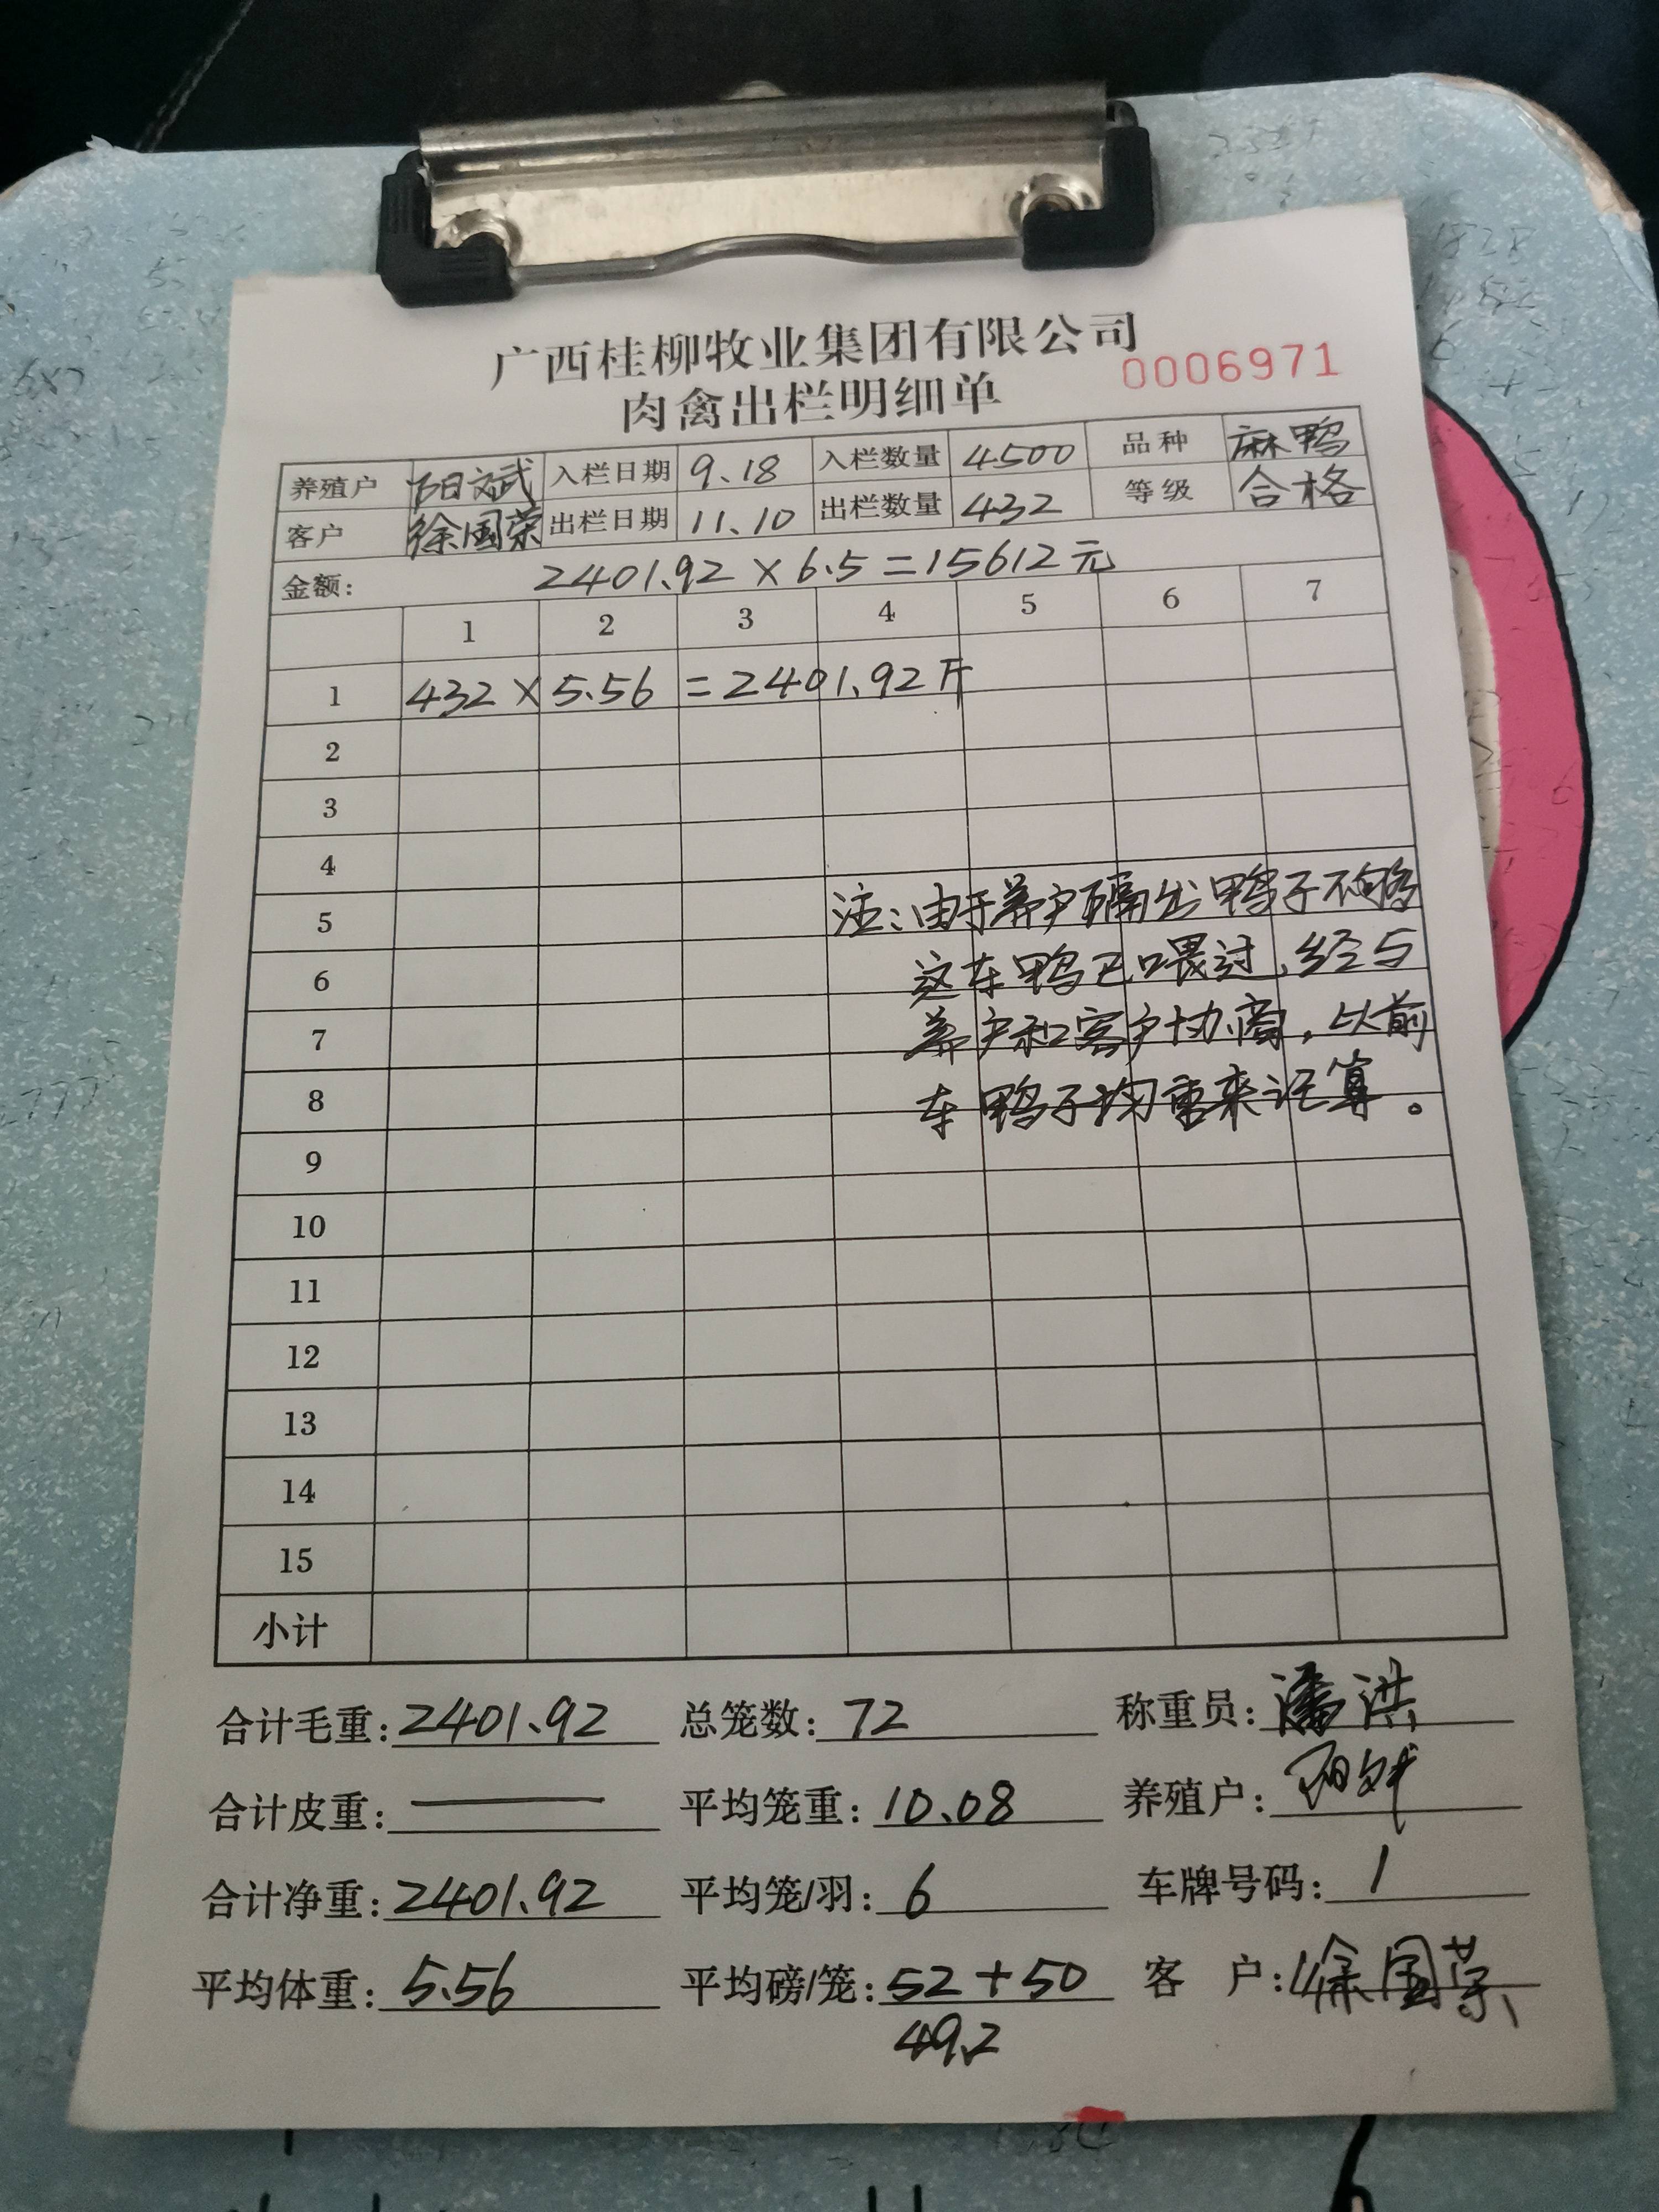 广西桂柳牧业集团有限公司
肉禽出栏明细单 0006971
养殖户 阳斌 入栏日期 9.18 入栏数量 4500 品种 麻鸭
客户 徐国荣 出栏日期 11.10 出栏数量 432 等级 合格
金额: 2401.92 × 6.5 = 15612元
1 2 3 4 5 6 7
1 432 × 5.56 = 2401.92斤
2
3
4
5 注:由于养户隔出鸭子不够
6 这车鸭已喂过,经与
7 养户和客户协商,以前
8 车鸭子均重来计算。
9
10
11
12
13
14
15
小计
合计毛重: 2401.92 总笼数: 72 称重员: 潘洪
合计皮重: — 平均笼重: 10.08 养殖户: 阳斌
合计净重: 2401.92 平均笼/羽: 6 车牌号码: 1
平均体重: 5.56 平均磅/笼: 52+50 客户: 徐国荣
49.2